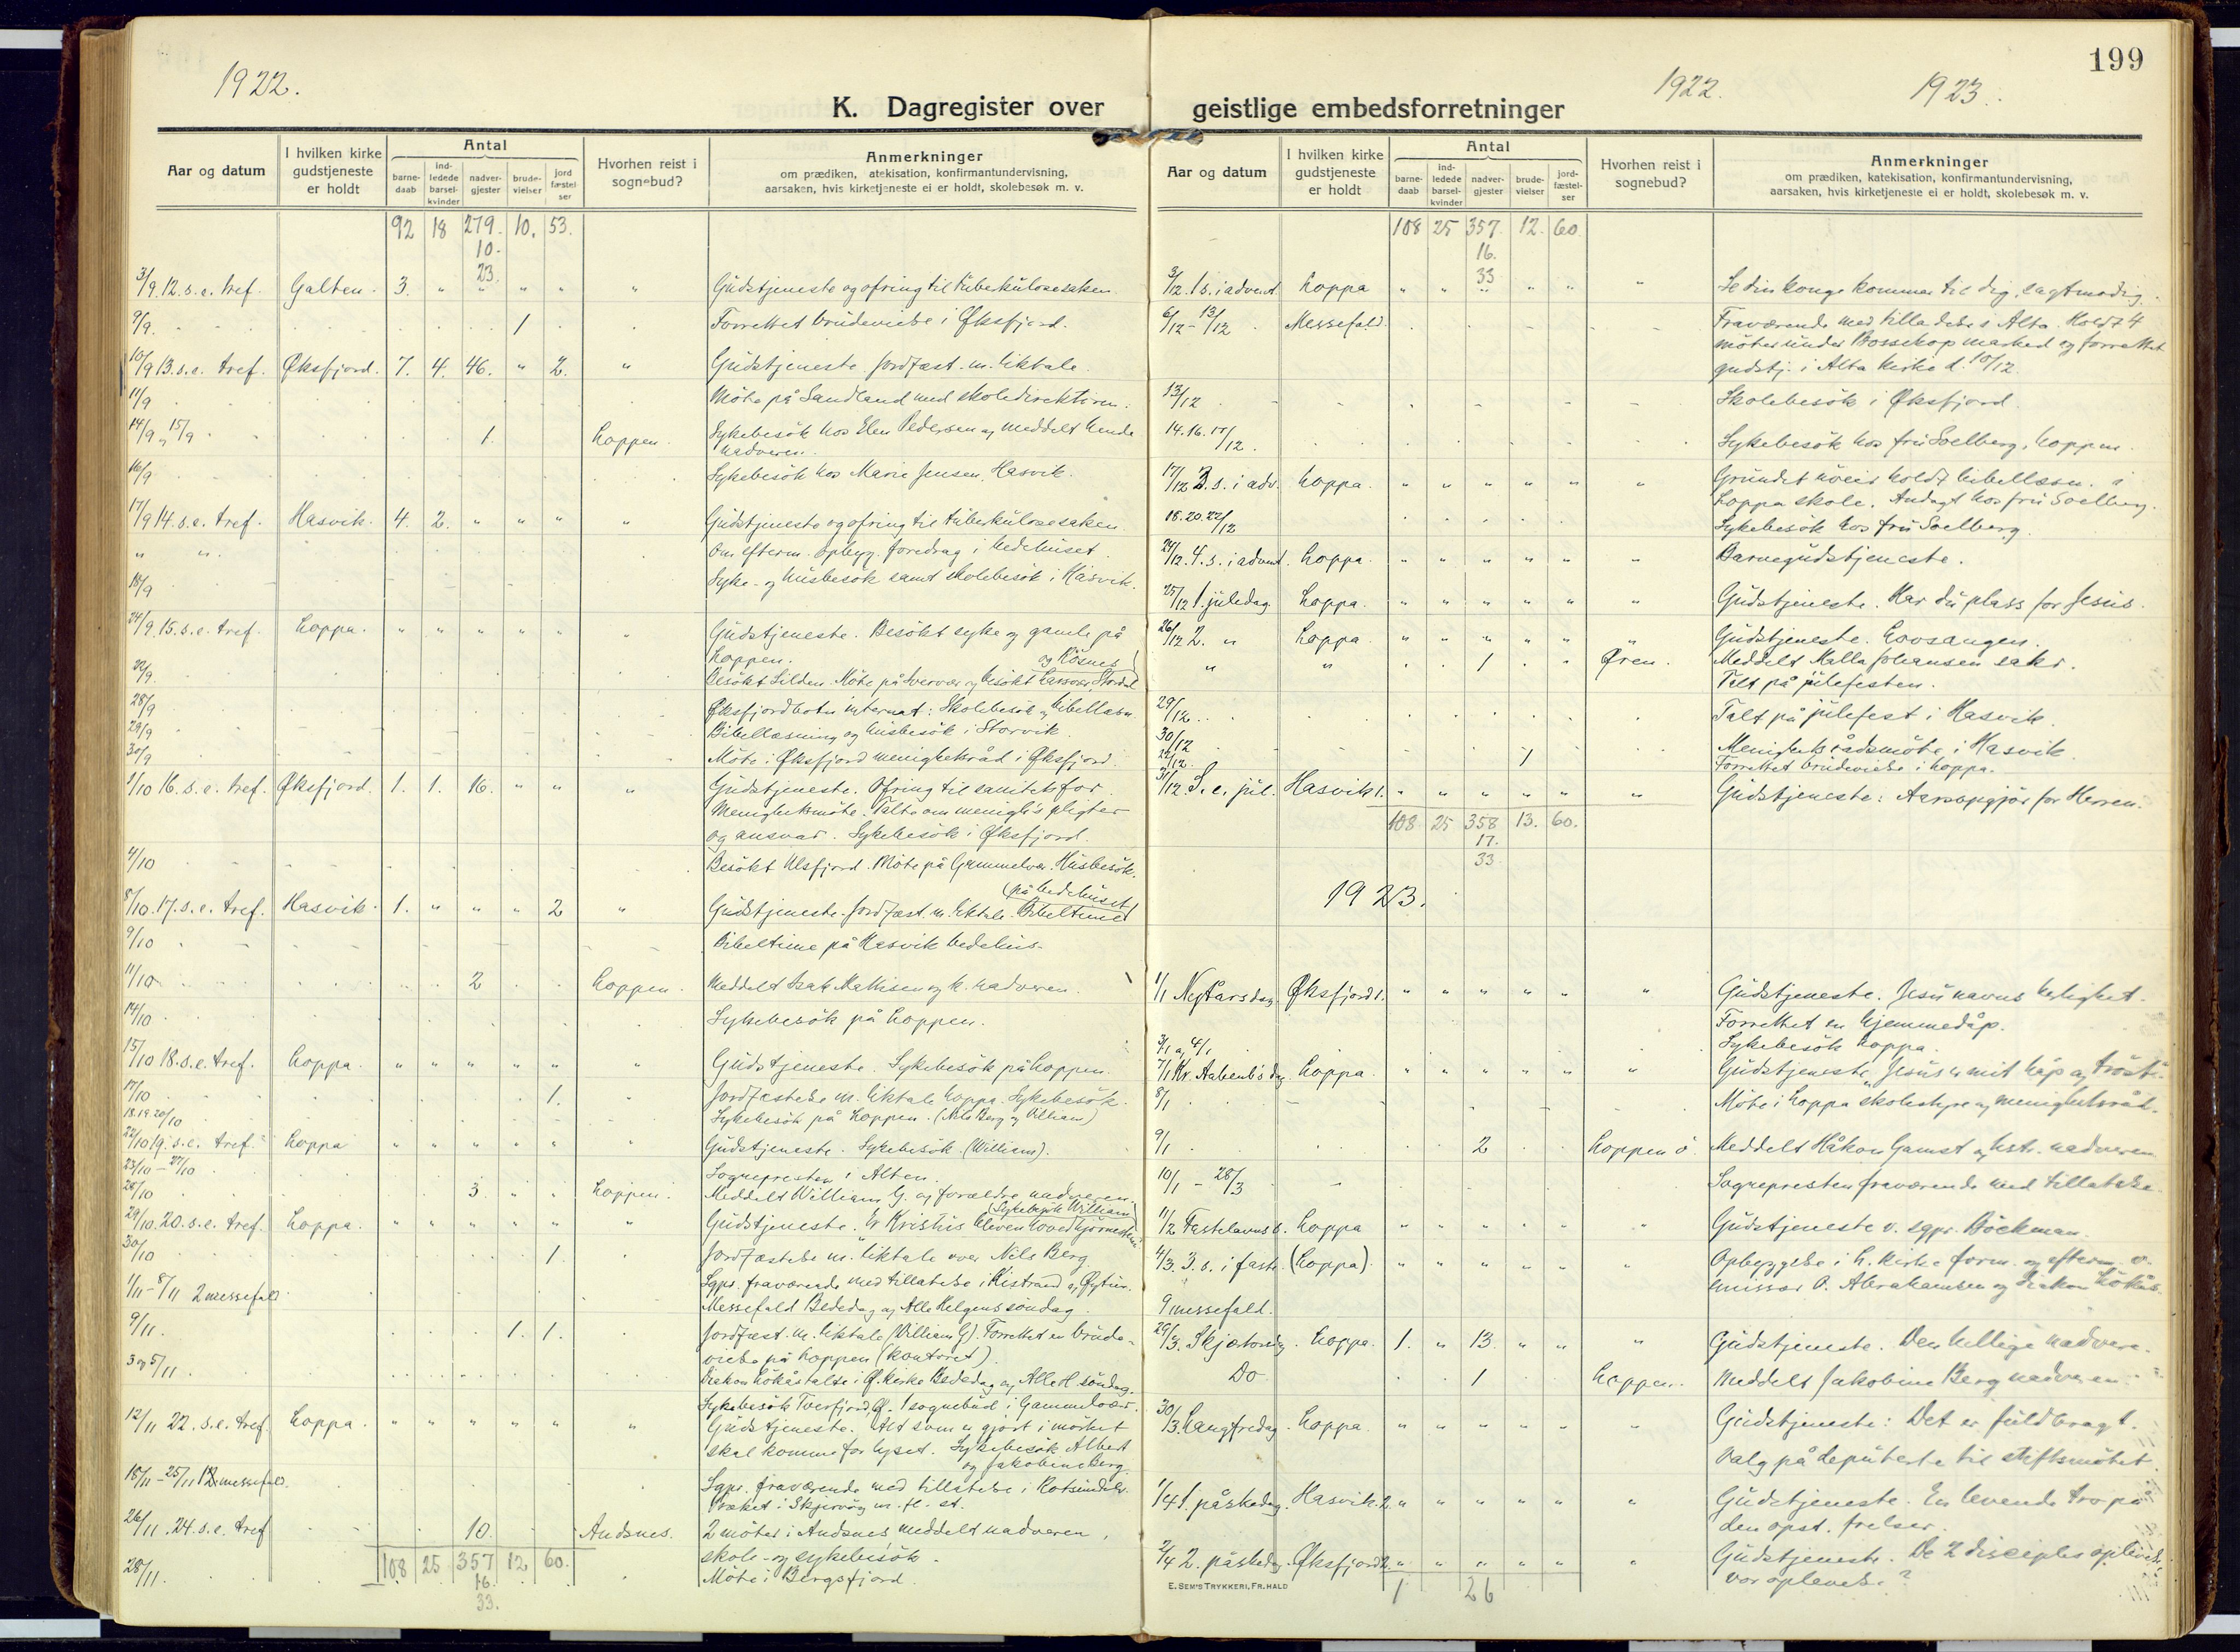 1922.
K. Dagregister over
Aar og datum
I hvilken kirke gudstjeneste er holdt
Antal
barne-daab
ind-ledede barsel-kvinder
nadver-gjester
brude-vielser
jord fæstel ser
Hvorhen reist i sognebud?
Anmerkninger
om prædiken, atekisation, konfirmantundervisning,
aarsaken, hvis kirketjeneste ei er holdt, skolebesøk m. v.
92 18 279. 10. 53.
10.
23.
3/9. 12. s. e. tref. Galten. 3. " " " " " Gudstjeneste og ofring til tuberkulosesaken.
9/9. 1 Forrettet brudevielse i Øksfjord.
10/9 13. s. e. tref. Øksfjord. 7. 4. 46. " 2. " Gudstjeneste. Jordfæst. m. liktale.
11/9 Møte på Sandland med skoledirektøren.
14/9 og 15/9 1. Loppen. Sykebesök hos Elen Pedersen og meddelt hende
nadveren.
16/9 Sykebesök hos Marie Jensen, Hasvik.
17/9 14. s. e. tref. Hasvik. 4. 2. " " " " Gudstjeneste og ofring til tuberkulosesaken.
" " Om efterm. opbyg. foredrag i bedehuset.
18/9 Syke- og husbesök samt skolebesök i Hasvik.
24/9. 15. s. e. tref. Loppa. " " " " " " Gudstjeneste. Besökt syke og gamle på
Loppen. og Kösnes
Besökt Silden. Möte på og besökt
28/9 Øksfjordbotn internat: Skolebesök og bibellæsn.
29/9 Bibellæsning og husbesök i Storvik.
30/9 Möte i Øksfjord menighetsråd i Øksfjord.
1/10 16. s. e. tref. Øksfjord. 1. 1. 16. " " " Gudstjeneste. Ofring til sanitetsfor.
Menighetsmöte. Talte om menigh's pligter
og ansvar. Sykebesök i Øksfjord.
4/10 Besökt Ulsfjord. Möte på Gammelvær. Husbesök.
(på bedehuset)
8/10. 17. s. e. tref. Hasvik. 1. " " " 2 " Gudstjeneste. Jordfæst. m. liktale. Bibeltime
9/10 Bibeltime på Hasvik bedehus.
11/10 2 Loppen. Meddelt Isak Mathisen og h. nadveren.
14/10 Sykebesök på Loppen.
15/10 18. s. e. tref. Loppa. " " " " " " Gudstjeneste. Sykebesök på Loppen.
17/10 1. Jordfæstelse m. liktale Loppa. Sykebesök.
18. 19. 20/10 Sykebesök på Loppen. (Nils Berg og William)
22/10 19. s. e. tref. Loppa " " " " " " Gudstjeneste. Sykebesök. (William).
23/10 – 27/10 Sognepresten i Alten.
28/10 3 Loppen. Meddelt William G. og forældre nadveren.
(Sykebesök William)
29/10. 20. s. e. tref. Loppa. " " " " " " Gudstjeneste. Er Kristus bleven hovedhjörnesten
30/10 1. Jordfæstelse m. liktale over Nils Berg.
1/11 – 8/11 2 messefald. Sgpr. fraværende med tillatelse i Kistrand og
Messefald Bededag og Alle Helgens söndag.
9/11. 1. 1. Jordfæst. m. liktale (William G). Forrettet en brude-
vielse på Loppen (kontoret).
3 og 5/11 Diakon talte i Ø. kirke Bededag og Alle H. söndag.
Sykebesök Tverfjord, Ø. 1 sognebud i Gammelvær.
12/11 22. s. e. tref. Loppa. " " " " " " Gudstjeneste. Alt som er gjort i mörket
skal komme for lyset. Sykebesök Albert
og Jakobine Berg.
18/11 – 25/11 messefald. Sgpr. fraværende med tillatelse i Rotsundelv.
Præket i Skjervöy m. fl. st.
26/11. 24. s. e. tref 10. Andsnes. 2 möter i Andsnes, meddelt nadveren,
skole- og sykebesök.
108 25 357 12 60.
28/11. Möte i Bergsfjord
16.
33.
199
1922. 1923.
geistlige embedsforretninger
Aar og datum
I hvilken kirke gudstjeneste er holdt
Antal
barne-daab
ind-ledede barsel-kvinder
nadver-gjester
brude-vielser
jord-fæstel-ser
Hvorhen reist i sognebud?
Anmerkninger
om prædiken, katekisation, konfirmantundervisning,
aarsaken, hvis kirketjeneste ei er holdt, skolebesøk m. v.
108 25 357. 12. 60.
16.
33
3/12. 1 s. i advent Loppa " " " " " " Se din konge kommer til dig, sagtmodig.
6/12 – 13/12 Messefald. Fraværende med tilladelse i Alta. Holdt 4
möter under Bossekop marked og forrettet
gudstj. i Alta kirke d. 10/12.
13/12 Skolebesök i Øksfjord.
14. 16. 15/12. Sykebesök hos fru Soelberg, Loppen.
17/12 3. s. i adv. Loppa. " " " " " " Grundet holdt bibellæsn. i
Loppa skole. Andagt hos fru Soelberg.
18. 20. 22/12 Sykebesök hos fru Soelberg.
24/12. 4. s. i advent. Loppa. " " " " " " Barnegudstjeneste.
25/12 1. juledag. Loppa. " " " " " " Gudstjeneste. Har du plass for Jesus.
26/12 2. " Loppa " " " " " " Gudstjeneste. Lovsangen.
" " 1 Øren. Meddelt Malla Johansen sakr.
Talt på julefesten.
29/12. Talt på julefest i Hasvik.
30/12 Menighetsrådsmöte i Hasvik.
22/12. 1 Forrettet brudevielse i Loppa.
31/12. S. e. jul. Hasvik 1. " " " " " " Gudstjeneste: Aarsopgjör for Herren.
108 25 358 13. 60.
17.
33
1923.
1/1 Nytårsdag. Øksfjord 1. " " " " " " Gudstjeneste. Jesu navns herlighet.
Forrettet en hjemmedåp.
3/1 og 4/1 Sykebesök Loppa.
7/1 Kr. Aabenb's dag. Loppa. " " " " " " Gudstjeneste "Jesus er mit håp og tröst".
8/1 Möte i Loppa skolestyre og menighetsråd.
9/1 2 Loppen ö. Meddelt Håkon Gamst og hstr. nadveren
10/1 – 28/3 Sognepresten fraværende med tillatelse.
11/2 Fastelavns s. Loppa " " " " " " Gudstjeneste v. sgpr. Böckman.
4/3. 3. s. i faste. (Loppa). " " " " " " Opbyggelse i L. kirke form. og efterm. v.
emissær O. Abrahamsen og Diakon
9 messefald.
29/3. Skjærtorsdag. Loppa. 1. " 13. " " " Gudstjeneste. Den hellige nadvere.
Do 1 Loppen. Meddelt Jakobine Berg nadveren.
30/3. Langfredag. Loppa " " " " " " Gudstjeneste: Det er fuldbragt.
Valg på deputerte til stiftsmötet.
1/4 1. påskedag. Hasvik. 2. " " " " " " Gudstjeneste. En levende tro på
den opst. frelser.
2/4 2. påskedag. Øksfjord 2. " " " " " " Gudstjeneste. De 2 disciples oplevelse,
vor oplevelse?
E. SEM'S TRYKKERI, FR.HALD
1 26